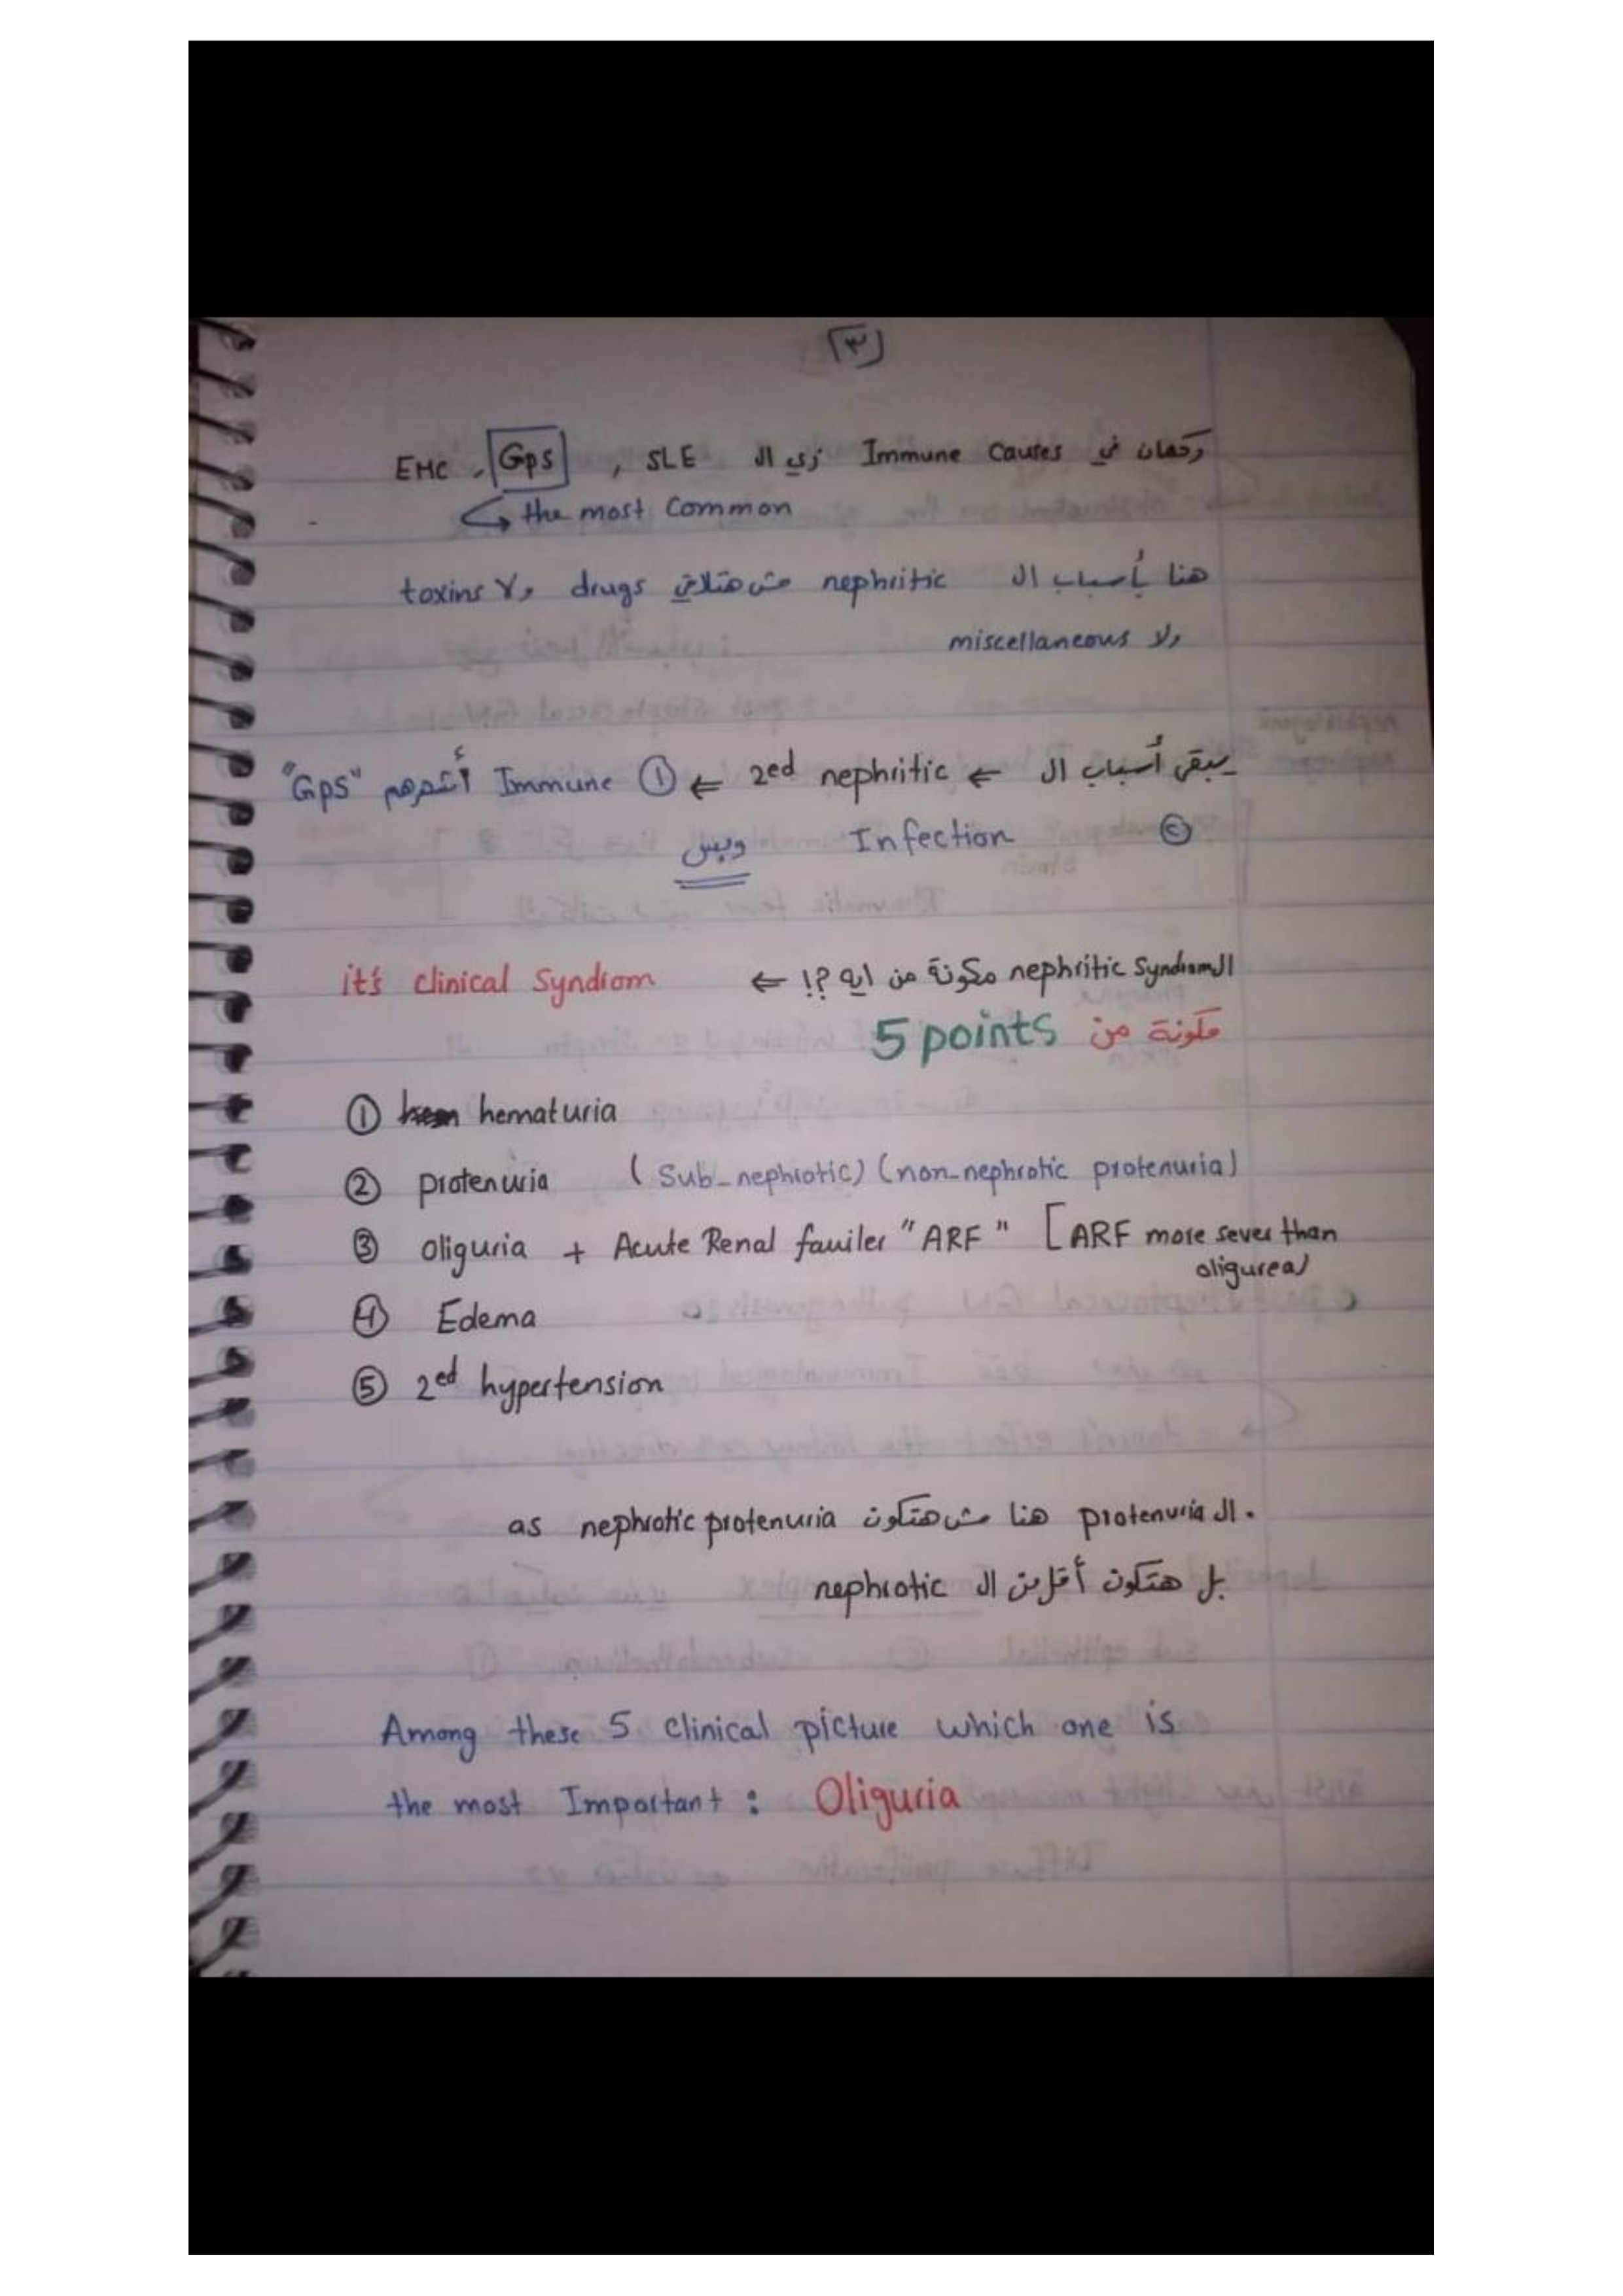 ٣
وكمان في Immune Causes زي ال SLE , Gps , EMC
the most Common
هنا بأسباب ال nephritic مش هتلاقي drugs ولا toxins
ولا miscellaneous
يبقى أسباب ال ← 2ed nephritic ← ① Immune أشهرهم "Gps"
② Infection وبس
ال nephritic Syndrom مكونة من ايه ؟! ← it's clinical Syndrom
مكونة من 5 points
① hematuria
② protenuria (Sub-nephrotic) (non-nephrotic protenuria)
③ oliguria + Acute Renal fauiler "ARF" [ARF more sever than
oligurea]
④ Edema
⑤ 2ed hypertension
. ال protenuria هنا مش هتكون as nephrotic protenuria
بل هتكون أقل من ال nephrotic
Among these 5 clinical picture which one is
the most Important : Oliguria